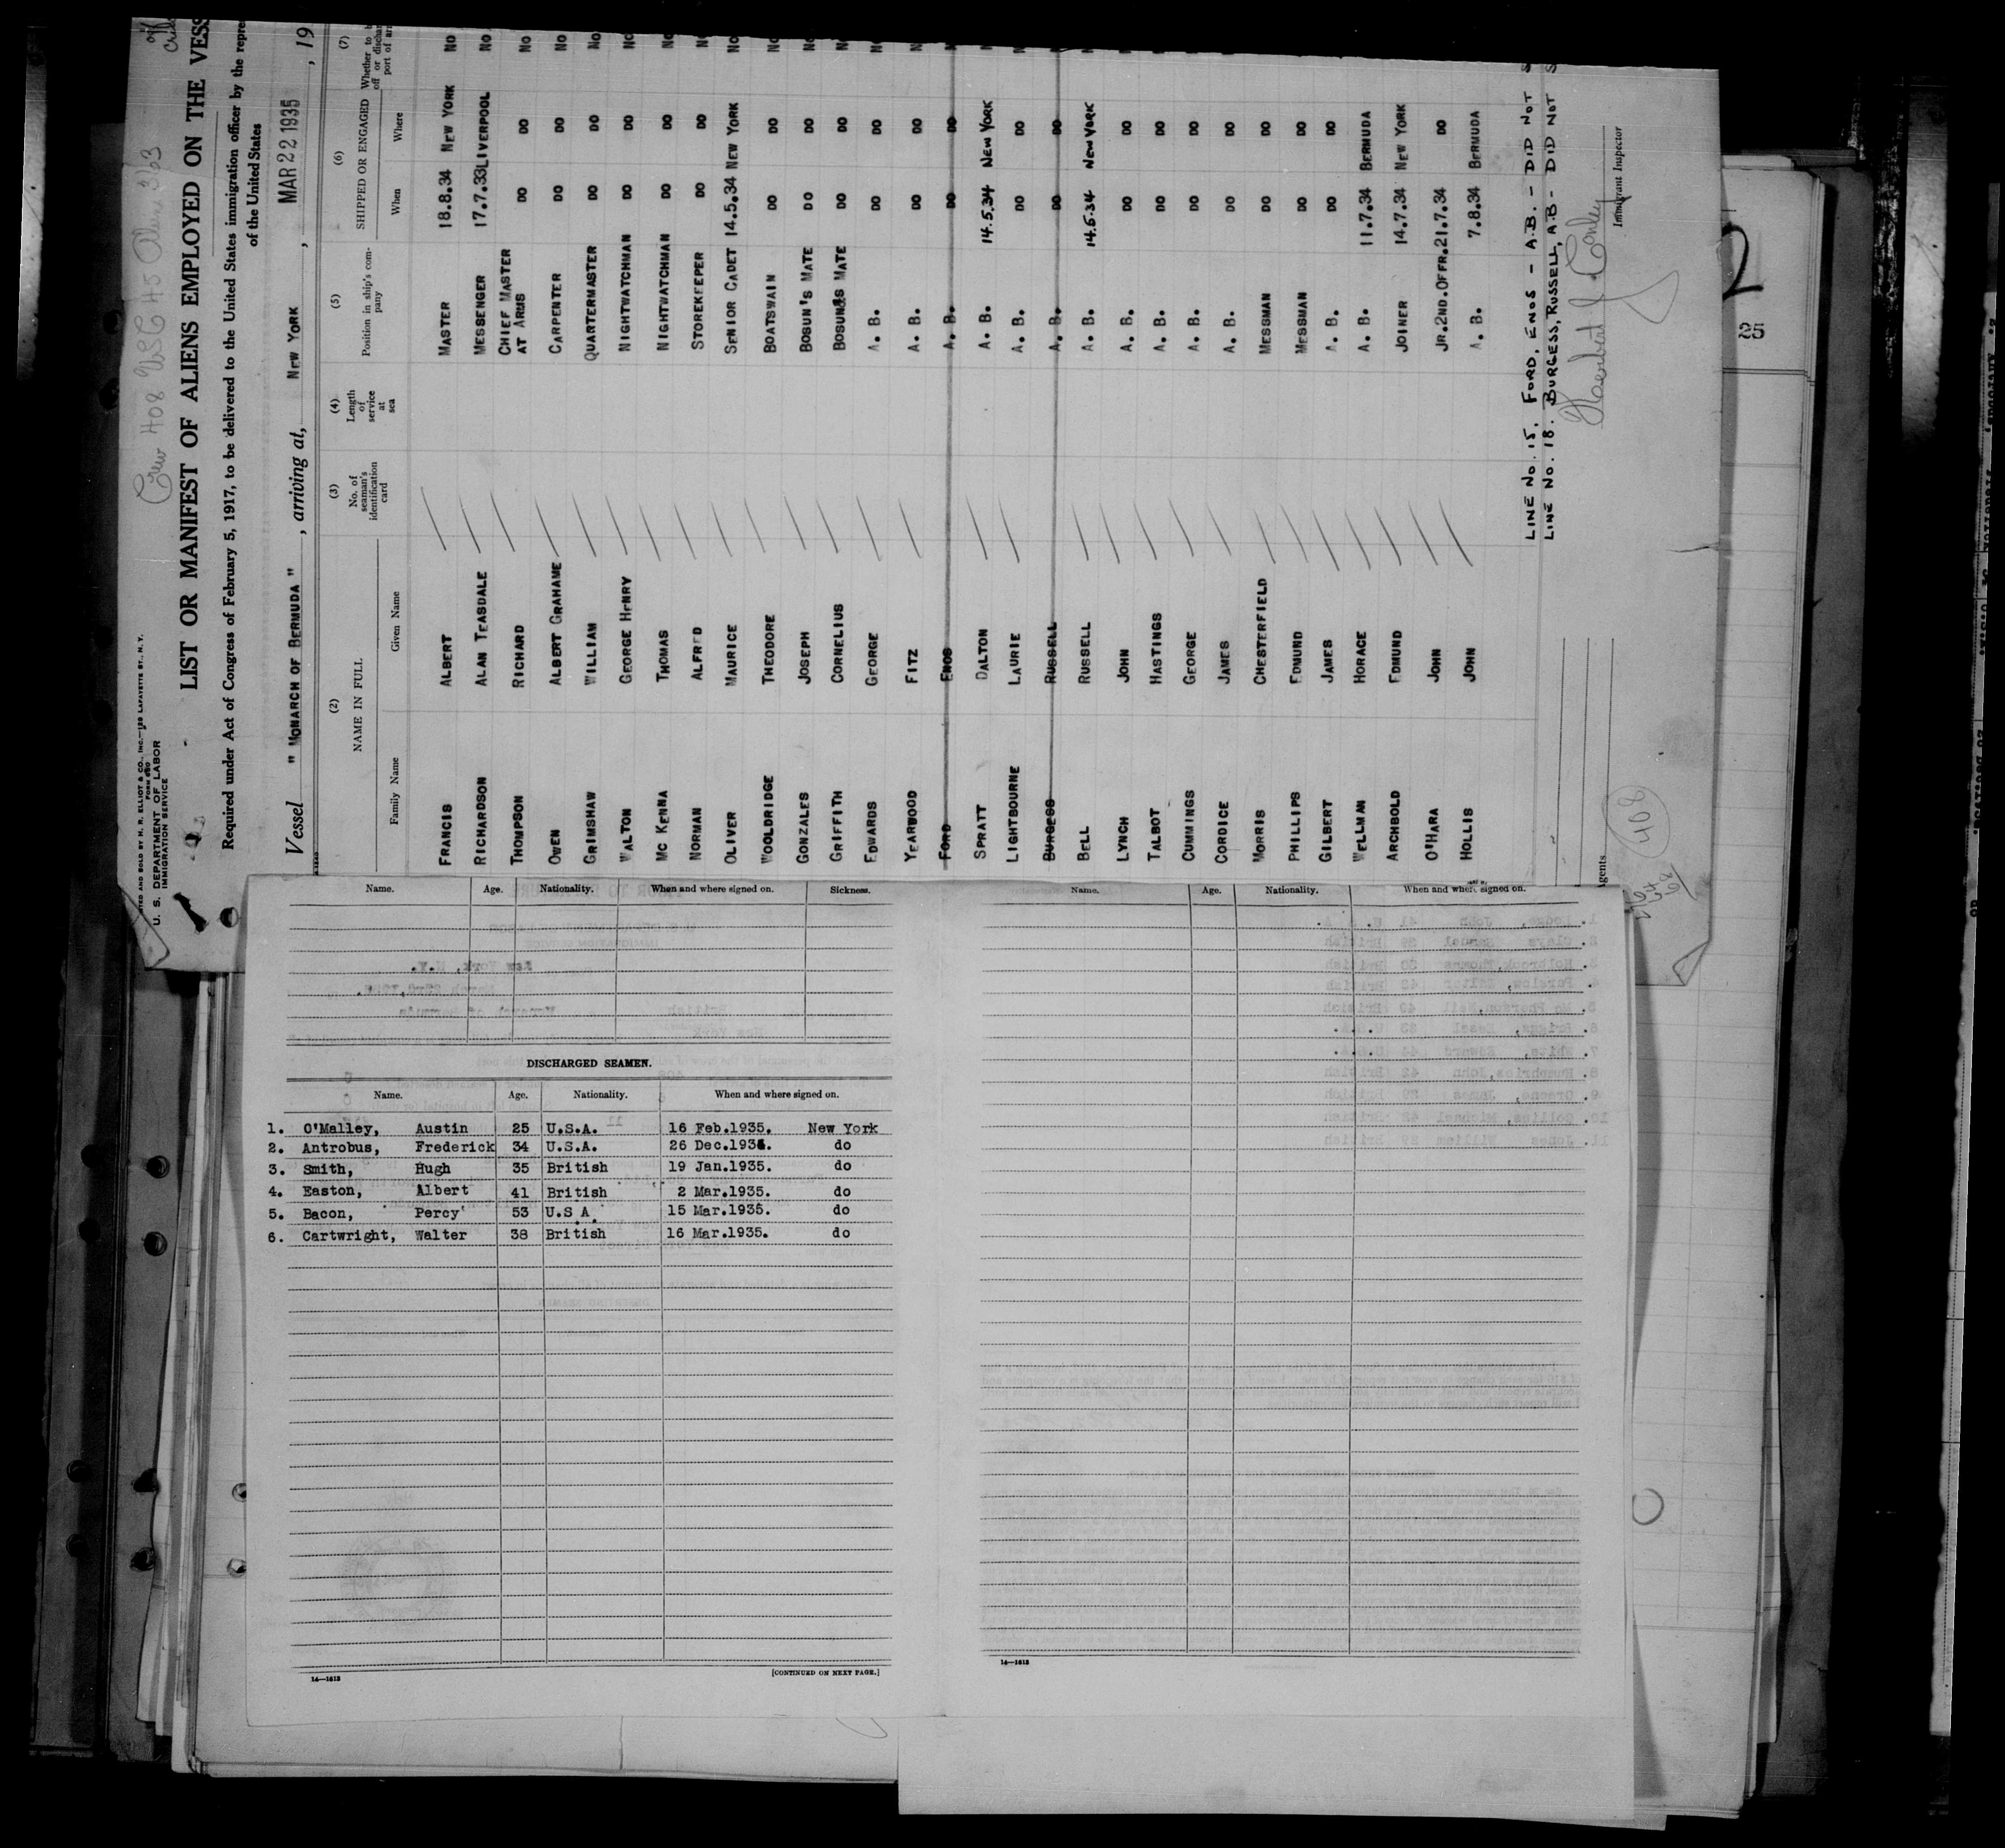 Crew 408 USC 45
PRINTED AND SOLD BY H. R. ELLIOT & CO., INC.—129 LAFAYETTE ST., N. Y.
U. S. DEPARTMENT OF LABOR
IMMIGRATION SERVICE
LIST OR MANIFEST OF ALIENS EMPLOYED ON THE VESS
Required under Act of Congress of February 5, 1917, to be delivered to the United States immigration officer by the repre
of the United States
Vessel " MONARCH OF BERMUDA " , arriving at, NEW YORK , MAR 22 1935 , 19
(2) (3) (4) (5) (6) (7)
NAME IN FULL No. of seaman's identification card Length of service at sea Position in ship's company SHIPPED OR ENGAGED Whether to b
off or dischar
port of arr
Family Name Given Name When Where
FRANCIS ALBERT MASTER 18.8.34 NEW YORK NO
RICHARDSON ALAN TEASDALE MESSENGER 17.7.33 LIVERPOOL NO
THOMPSON RICHARD CHIEF MASTER AT ARMS DO DO NO
OWEN ALBERT GRAHAME CARPENTER DO DO NO
GRIMSHAW WILLIAM QUARTERMASTER DO DO NO
WALTON GEORGE HENRY NIGHTWATCHMAN DO DO NO
MC KENNA THOMAS NIGHTWATCHMAN DO DO NO
NORMAN ALFRED STOREKEEPER DO DO NO
OLIVER MAURICE SENIOR CADET 14.5.34 NEW YORK NO
WOOLDRIDGE THEODORE BOATSWAIN DO DO NO
GONZALES JOSEPH BOSUN'S MATE DO DO NO
GRIFFITH CORNELIUS BOSUN&S MATE DO DO N
EDWARDS GEORGE A. B. DO DO N
YEARWOOD FITZ A. B. DO DO N
FORD ENOS A. B. DO DO N
SPRATT DALTON A. B. 14.5.34 NEW YORK N
LIGHTBOURNE LAURIE A. B. DO DO N
BURGESS RUSSELL A. B. DO DO N
BELL RUSSELL A. B. 14.5.34 NEW YORK N
LYNCH JOHN A. B. DO DO
TALBOT HASTINGS A. B. DO DO
CUMMINGS GEORGE A. B. DO DO
CORDICE JAMES A. B. DO DO
MORRIS CHESTERFIELD MESSMAN DO DO
PHILLIPS EDMUND MESSMAN DO DO
GILBERT JAMES A. B. DO DO
WELLMAN HORACE A. B. 11.7.34 BERMUDA
ARCHBOLD EDMUND JOINER 14.7.34 NEW YORK
O'HARA JOHN JR.2ND.OFFR. 21.7.34 DO
HOLLIS JOHN A. B. 7.8.34 BERMUDA
LINE NO. 15. FORD, ENOS - A.B. - DID NOT S
LINE NO. 18. BURGESS, RUSSELL, A.B - DID NOT S
Immigrant Inspector
Agents
408
Name. Age. Nationality. When and where signed on. Sickness.
DISCHARGED SEAMEN.
Name. Age. Nationality. When and where signed on.
1. O'Malley, Austin 25 U.S.A. 16 Feb.1935. New York
2. Antrobus, Frederick 34 U.S.A. 26 Dec.1934. do
3. Smith, Hugh 35 British 19 Jan.1935. do
4. Easton, Albert 41 British 2 Mar.1935. do
5. Bacon, Percy 53 U.S A. 15 Mar.1935. do
6. Cartwright, Walter 38 British 16 Mar.1935. do
14—1613 [CONTINUED ON NEXT PAGE.]
Name. Age. Nationality. When and where signed on.
14—1613
2